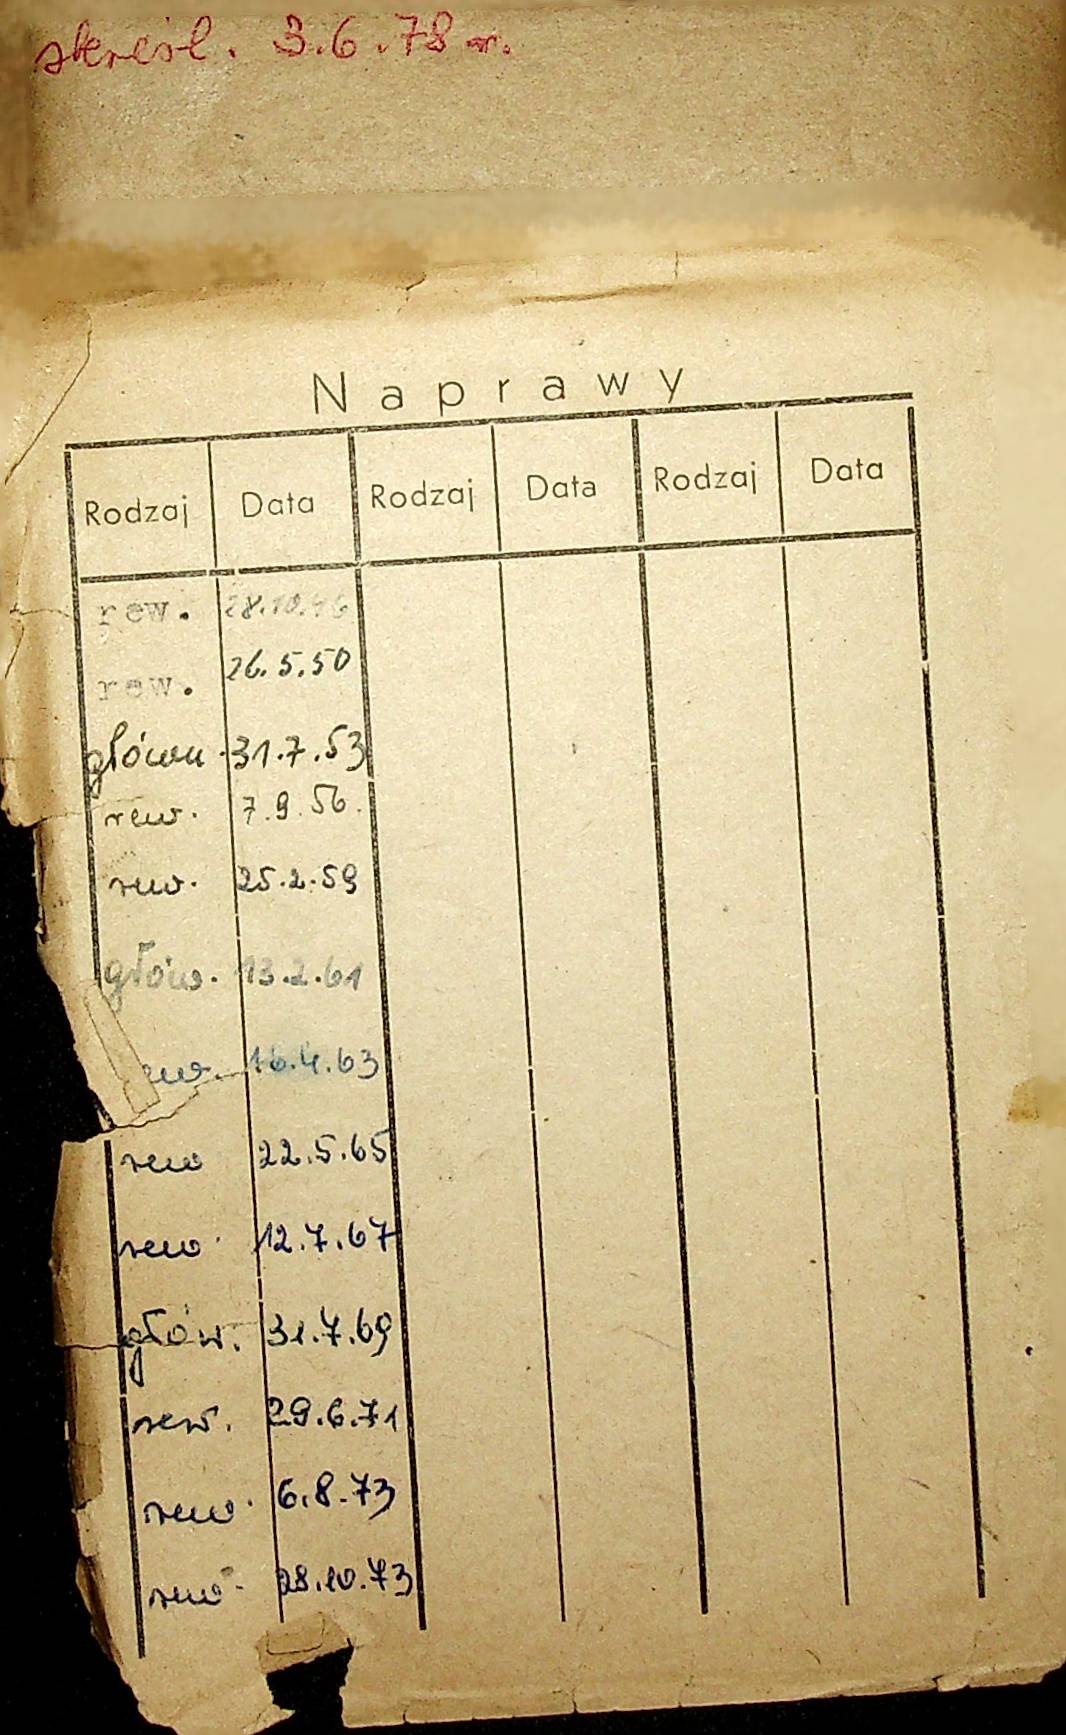 skreśl. 3.6.78 r.
Naprawy
Rodzaj Data Rodzaj Data Rodzaj Data
rew. 28.10.46
rew. 26.5.50
główn. 31.7.53
rew. 7.9.56.
rew. 25.2.59
głów. 13.2.61
rew. 16.4.63
rew 22.5.65
rew. 12.7.67
głów. 31.7.69
rew. 29.6.71
rew. 6.8.73
rew. 28.10.73